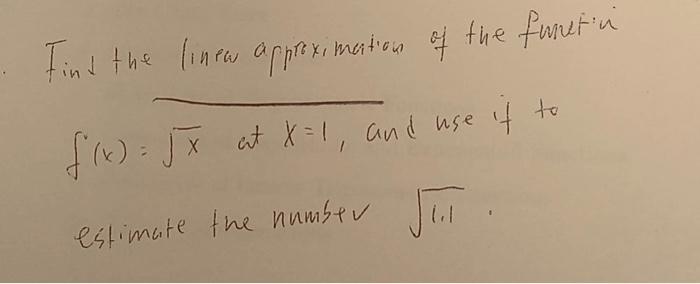 Find the linear approximation of the function
f(x) = √x at x=1, and use it to
estimate the number √1.1.